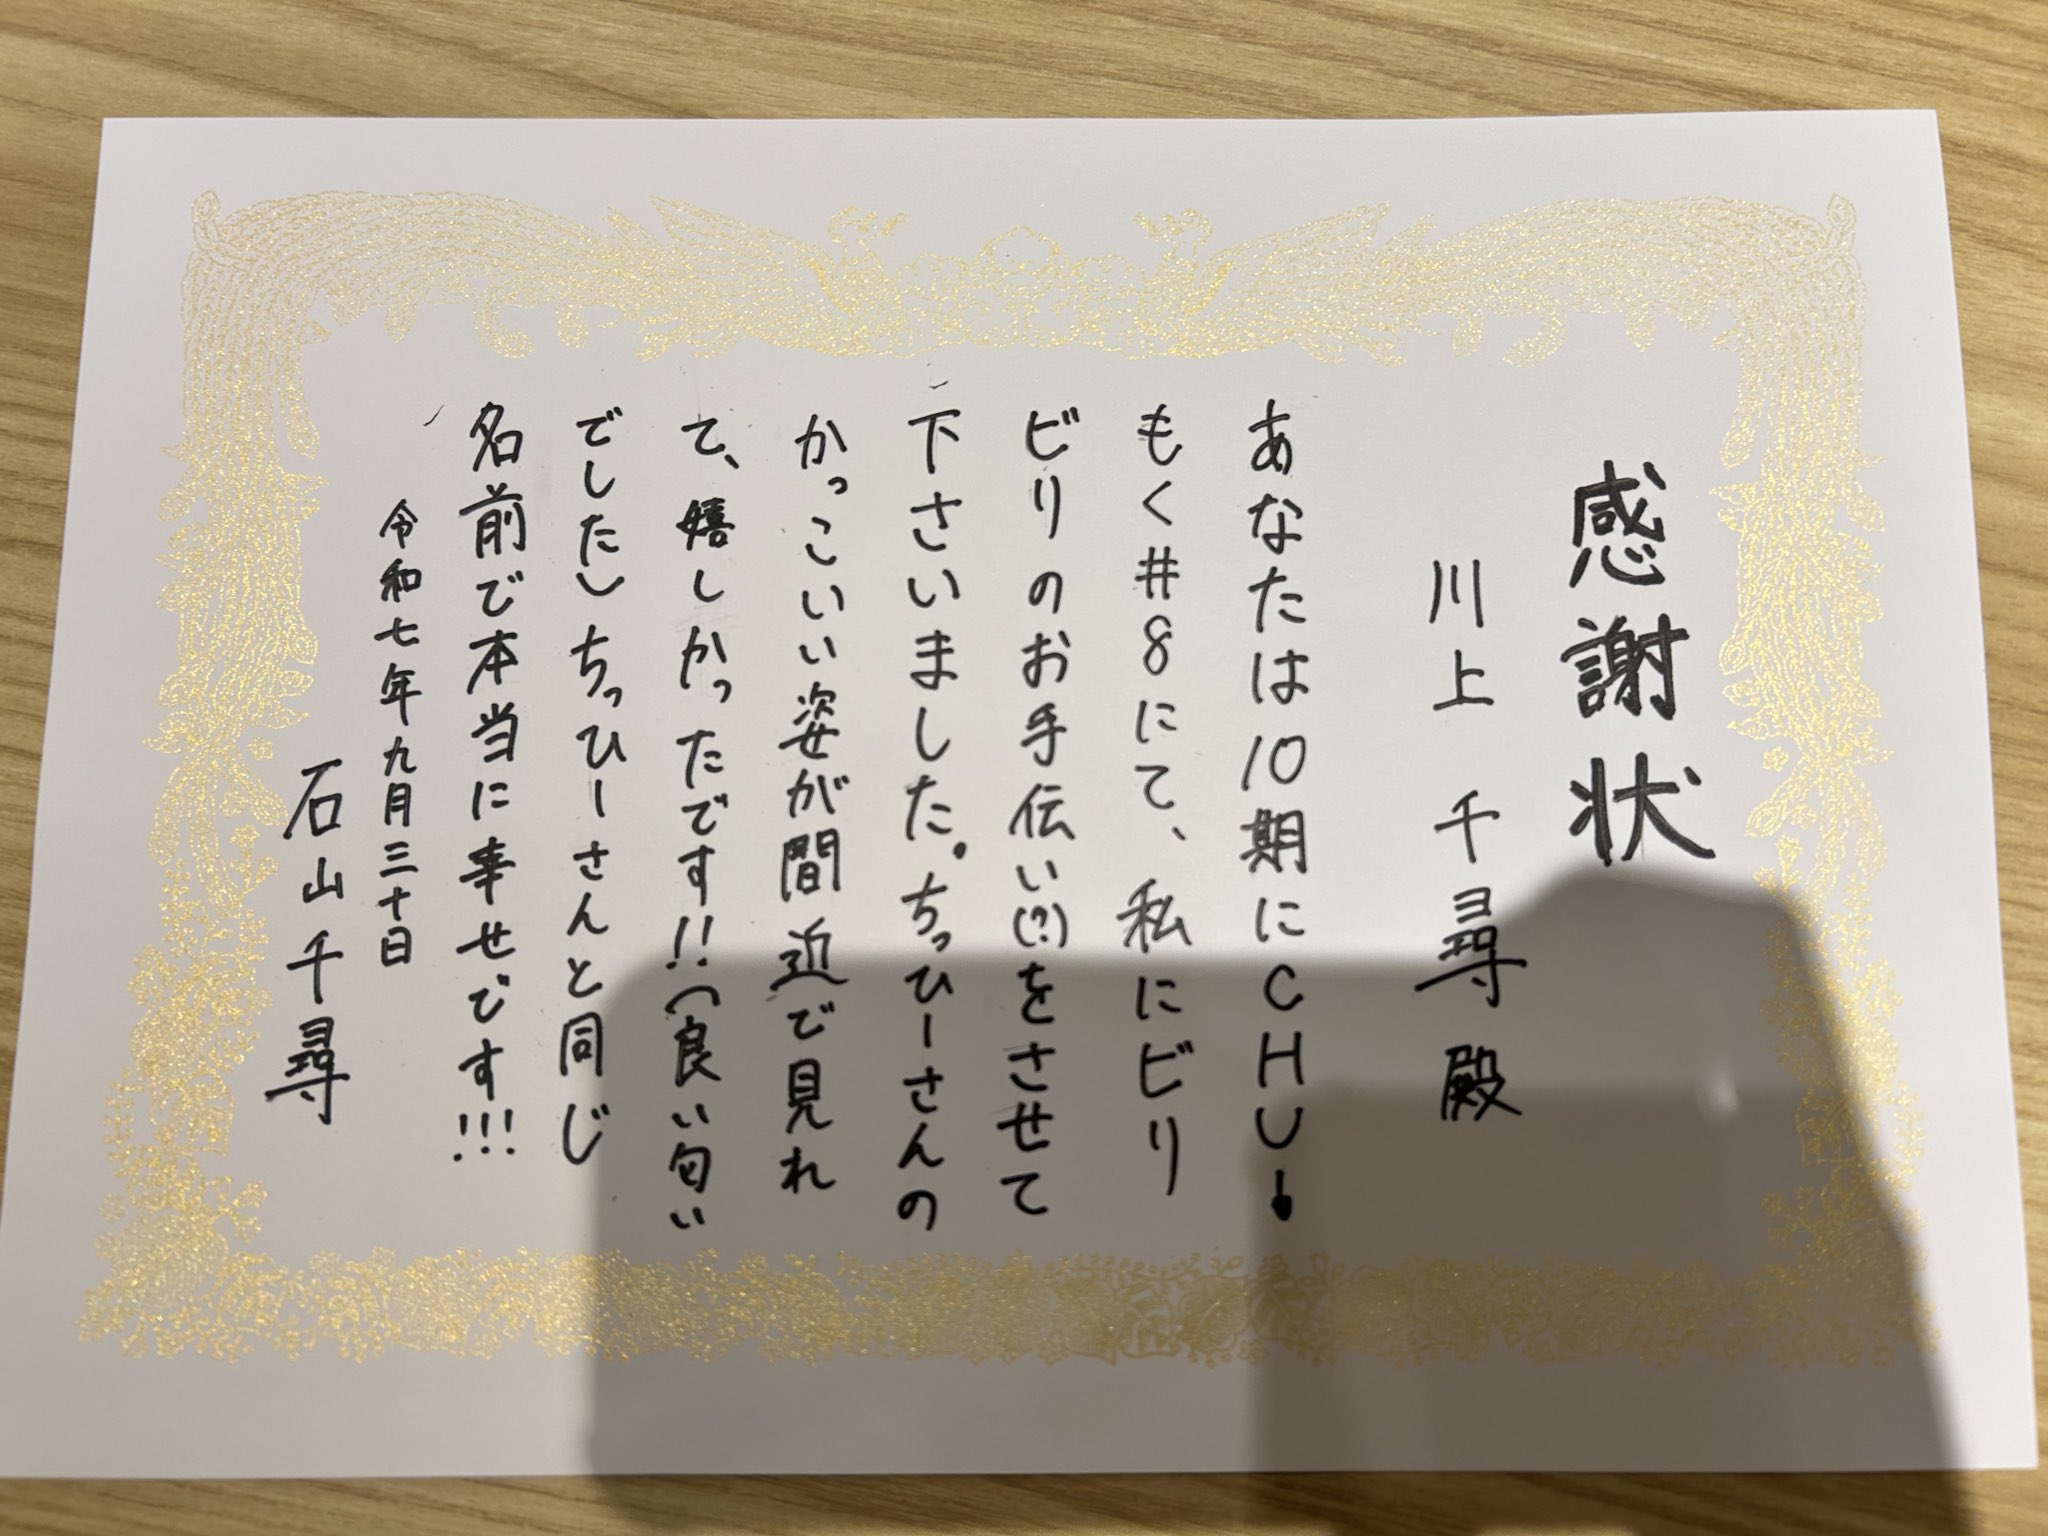 感謝状
川上 千尋 殿
あなたは10期にCHU!
もく#8にて、私にビリ
ビリのお手伝い(?)をさせて
下さいました。ちっひーさんの
かっこいい姿が間近で見れ
て、嬉しかったです!!(良い匂い
でした)ちっひーさんと同じ
名前で本当に幸せです!!!
令和七年九月三十日
石山千尋